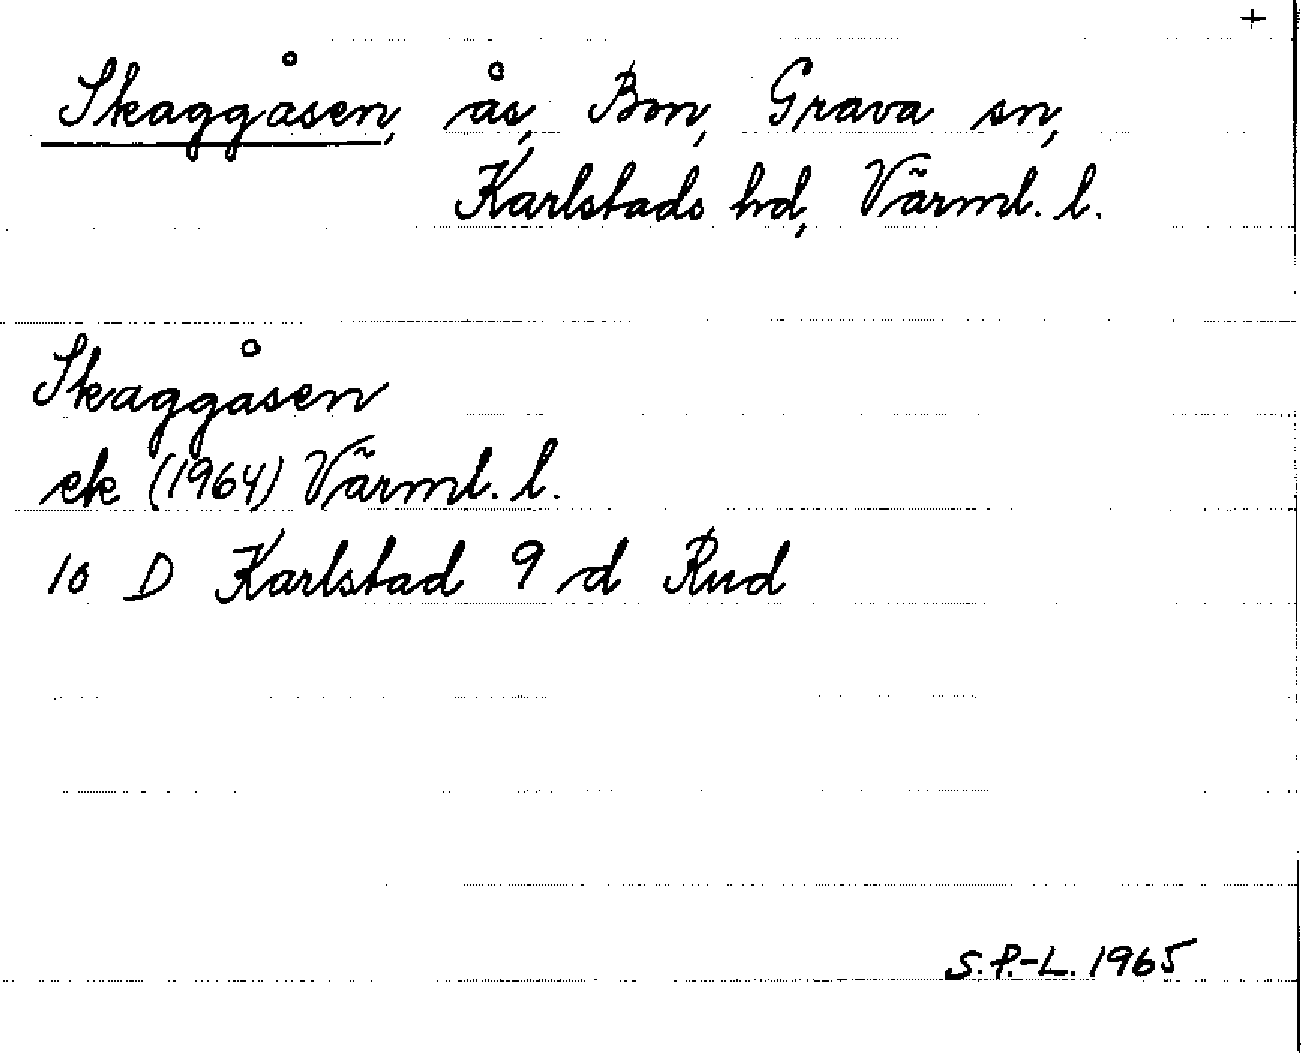 +
Skaggåsen, ås, Bon, Grava sn,
Karlstads hd, Värml. l.
Skaggåsen
ek (1964) Värml. l.
10 D Karlstad 9 d Rud
S.P.-L. 1965